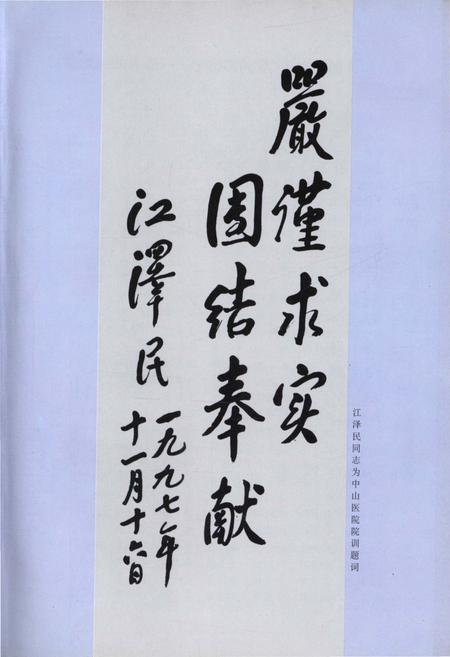 嚴謹求实
团结奉献
江澤民
一九九七年
十一月十六日
江泽民同志为中山医院院训题词